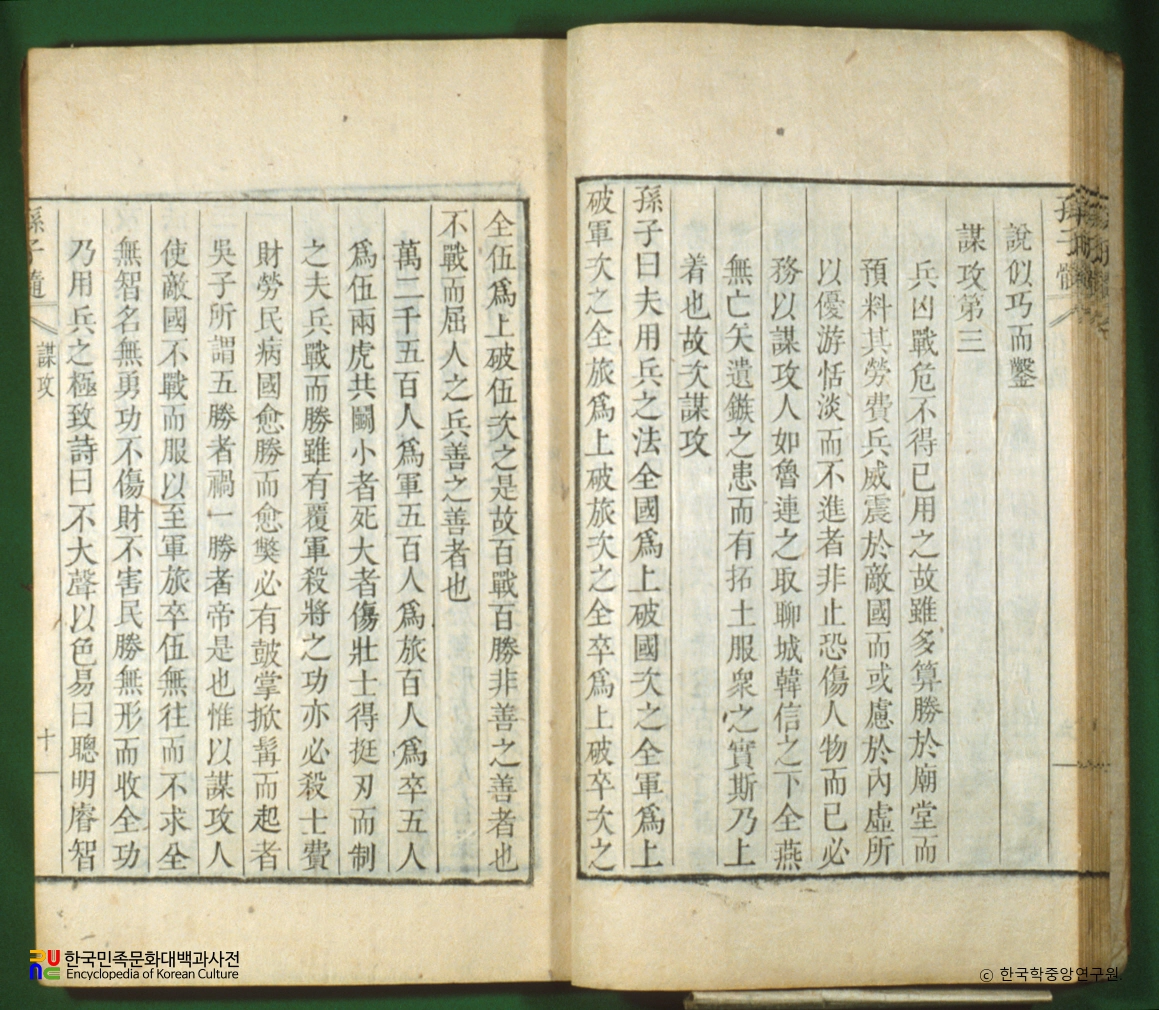 說似巧而鑿
謀攻第三
兵凶戰危不得已用之故雖多算勝於廟堂而
預料其勞費兵威震於敵國而或慮於內虛所
以優游恬淡而不進者非止恐傷人物而已必
務以謀攻人如魯連之取聊城韓信之下全燕
無亡矢遺鏃之患而有拓土服衆之實斯乃上
着也故次謀攻
孫子曰夫用兵之法全國爲上破國次之全軍爲上
破軍次之全旅爲上破旅次之全卒爲上破卒次之
全伍爲上破伍次之是故百戰百勝非善之善者也
不戰而屈人之兵善之善者也
萬二千五百人爲軍五百人爲旅百人爲卒五人
爲伍兩虎共鬭小者死大者傷壯士得挺刃而制
之夫兵戰而勝雖有覆軍殺將之功亦必殺士費
財勞民病國愈勝而愈獘必有皷掌掀髯而起者
吳子所謂五勝者禍一勝者帝是也惟以謀攻人
使敵國不戰而服以至軍旅卒伍無往而不求全
無智名無勇功不傷財不害民勝無形而收全功
乃用兵之極致詩曰不大聲以色易曰聰明睿智
孫子髓
謀攻
十一
한국민족문화대백과사전
Encyclopedia of Korean Culture
© 한국학중앙연구원.